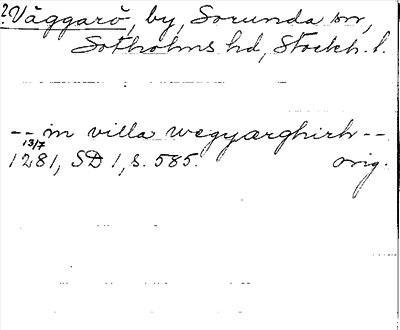 ? Väggarö, by, Sorunda sn,
Sotholms hd, Stockh. l.
-- in villa wegyærghirh --
13/7
1281, SD 1, s. 585. orig.